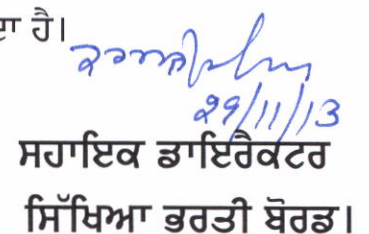 ਦਾ ਹੈ।
29/11/13
ਸਹਾਇਕ ਡਾਇਰੈਕਟਰ
ਸਿੱਖਿਆ ਭਰਤੀ ਬੋਰਡ।